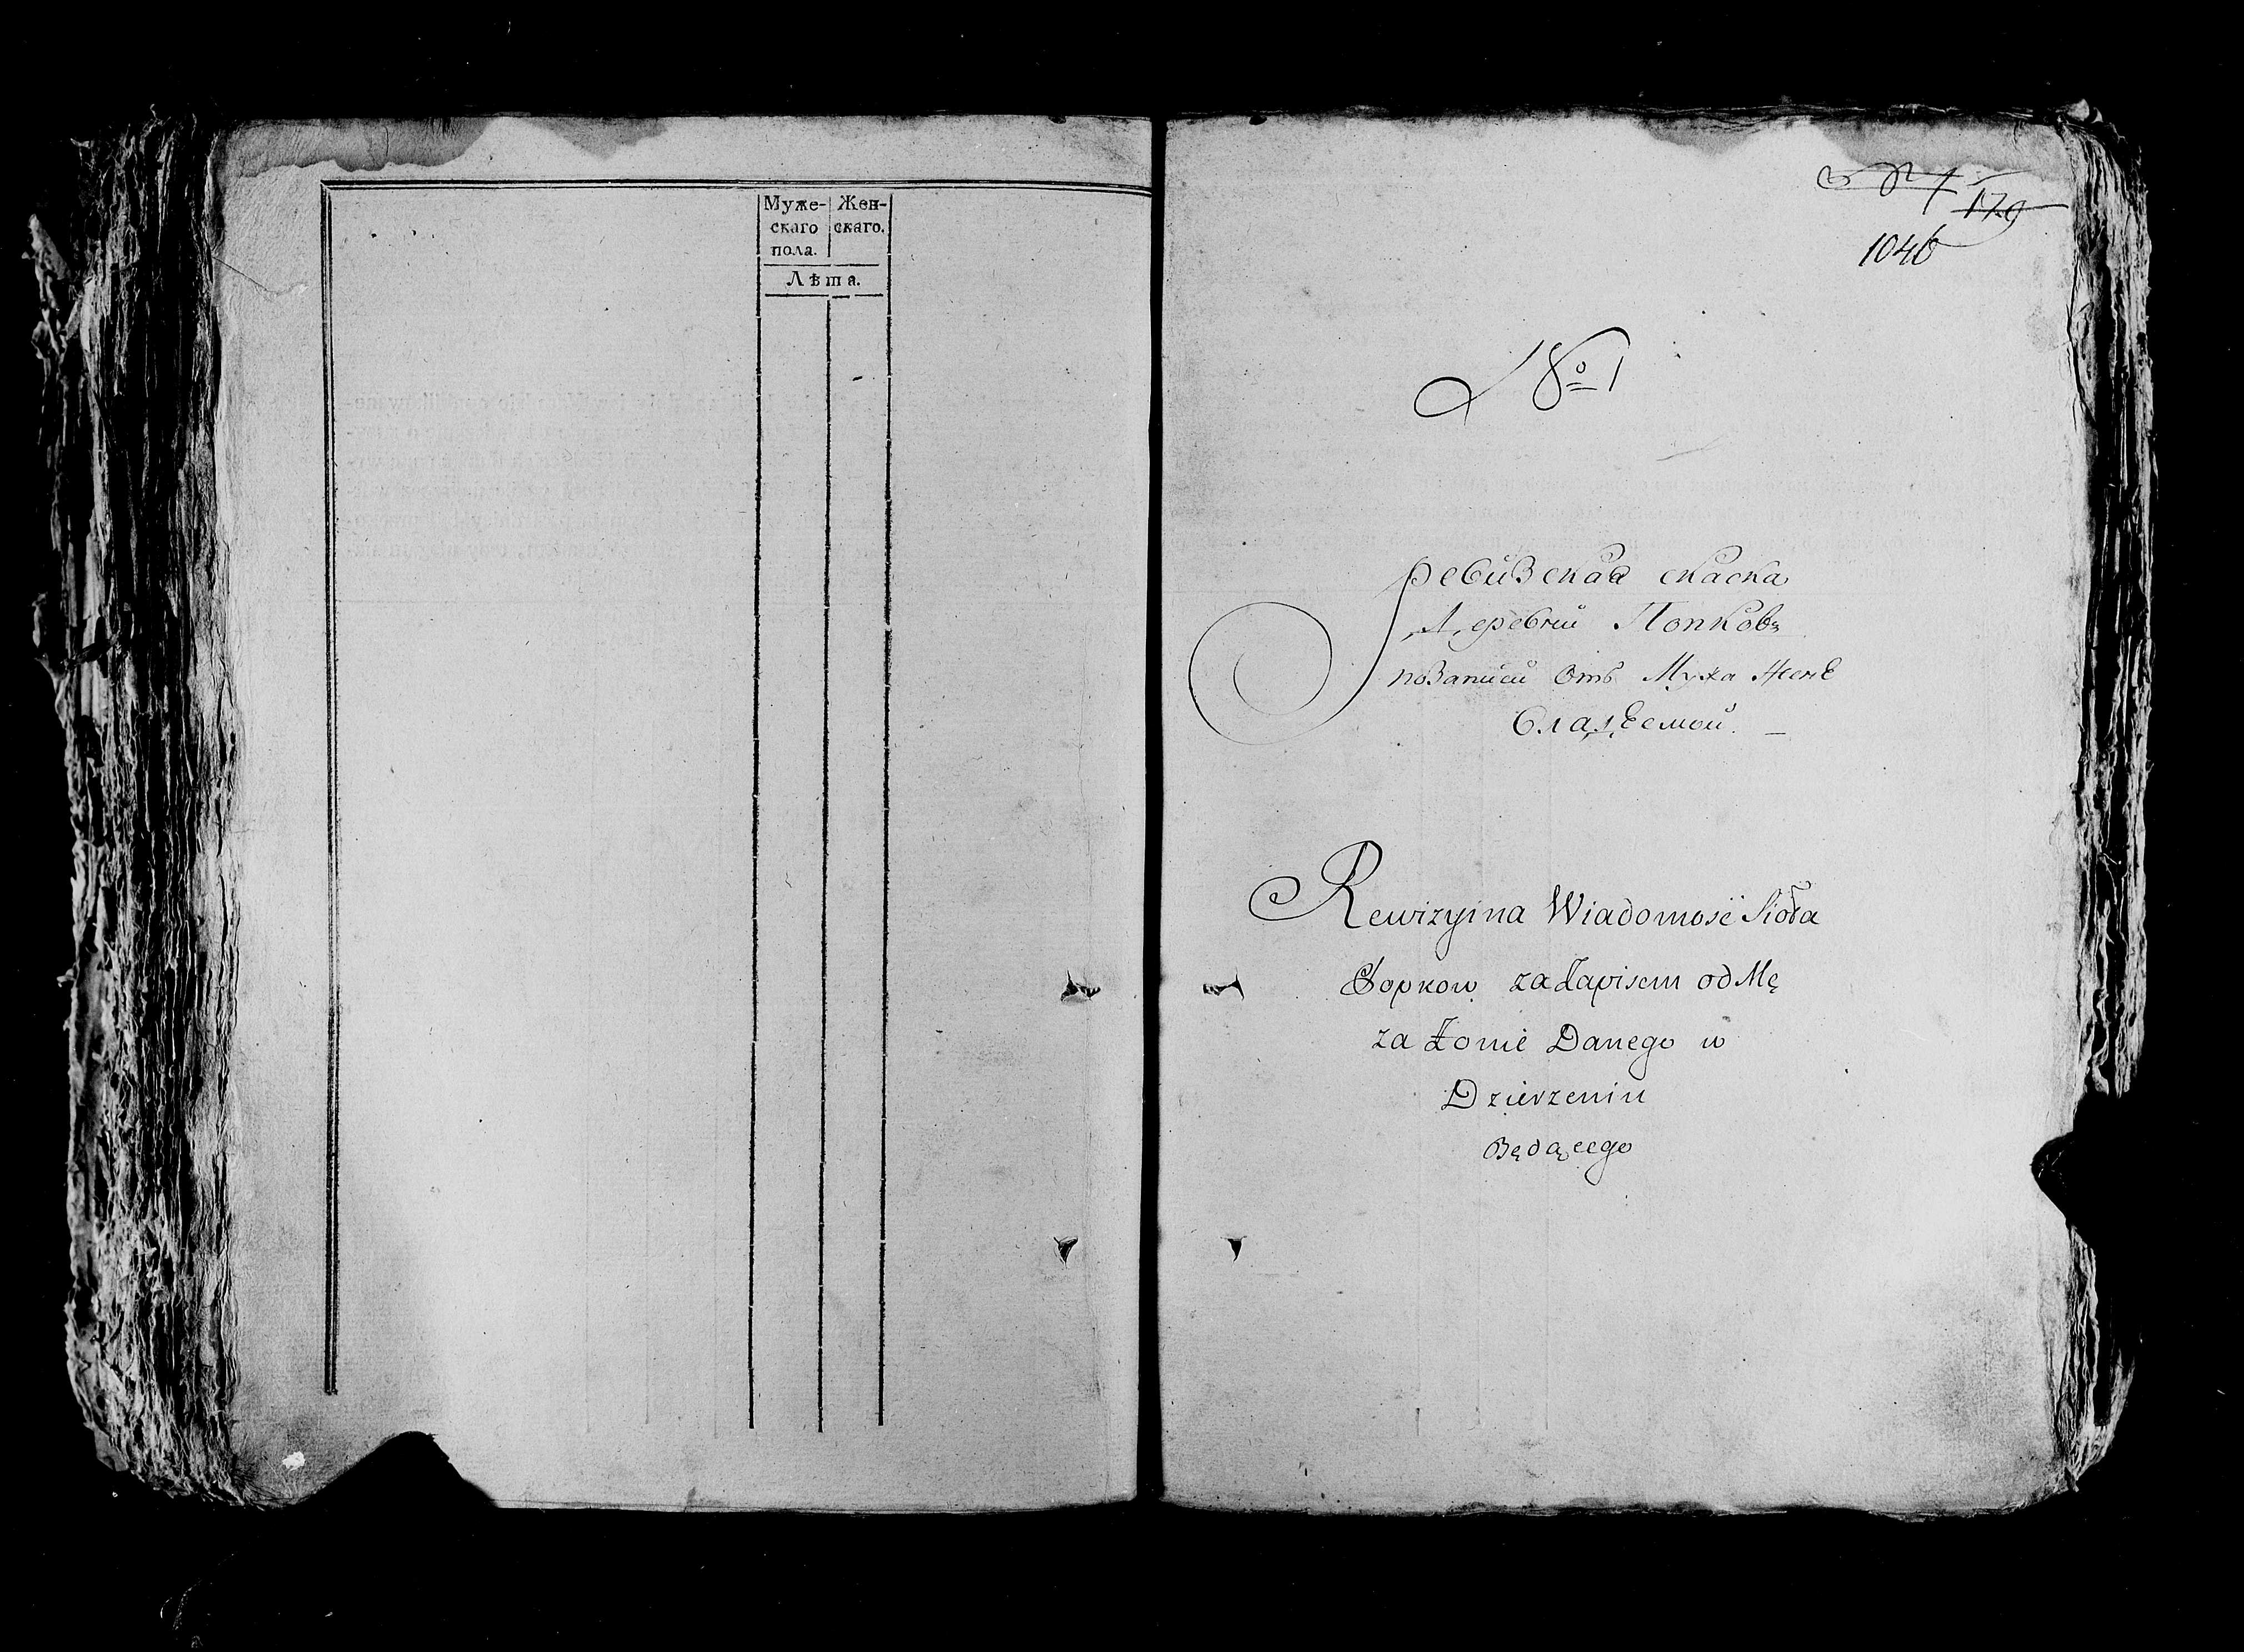 Муже- Жен-
скаго скаго.
пола.
Лѣта.
1046
№ 1
Ревизская скаска
Деревни Попковъ
по записи отъ Мужа Женѣ
владѣемой. –
Rewizyina Wiadomość Sioła
Popkow za Zapisem od Mę
za Żonie Danego w
Dzierzeniu
Będącego